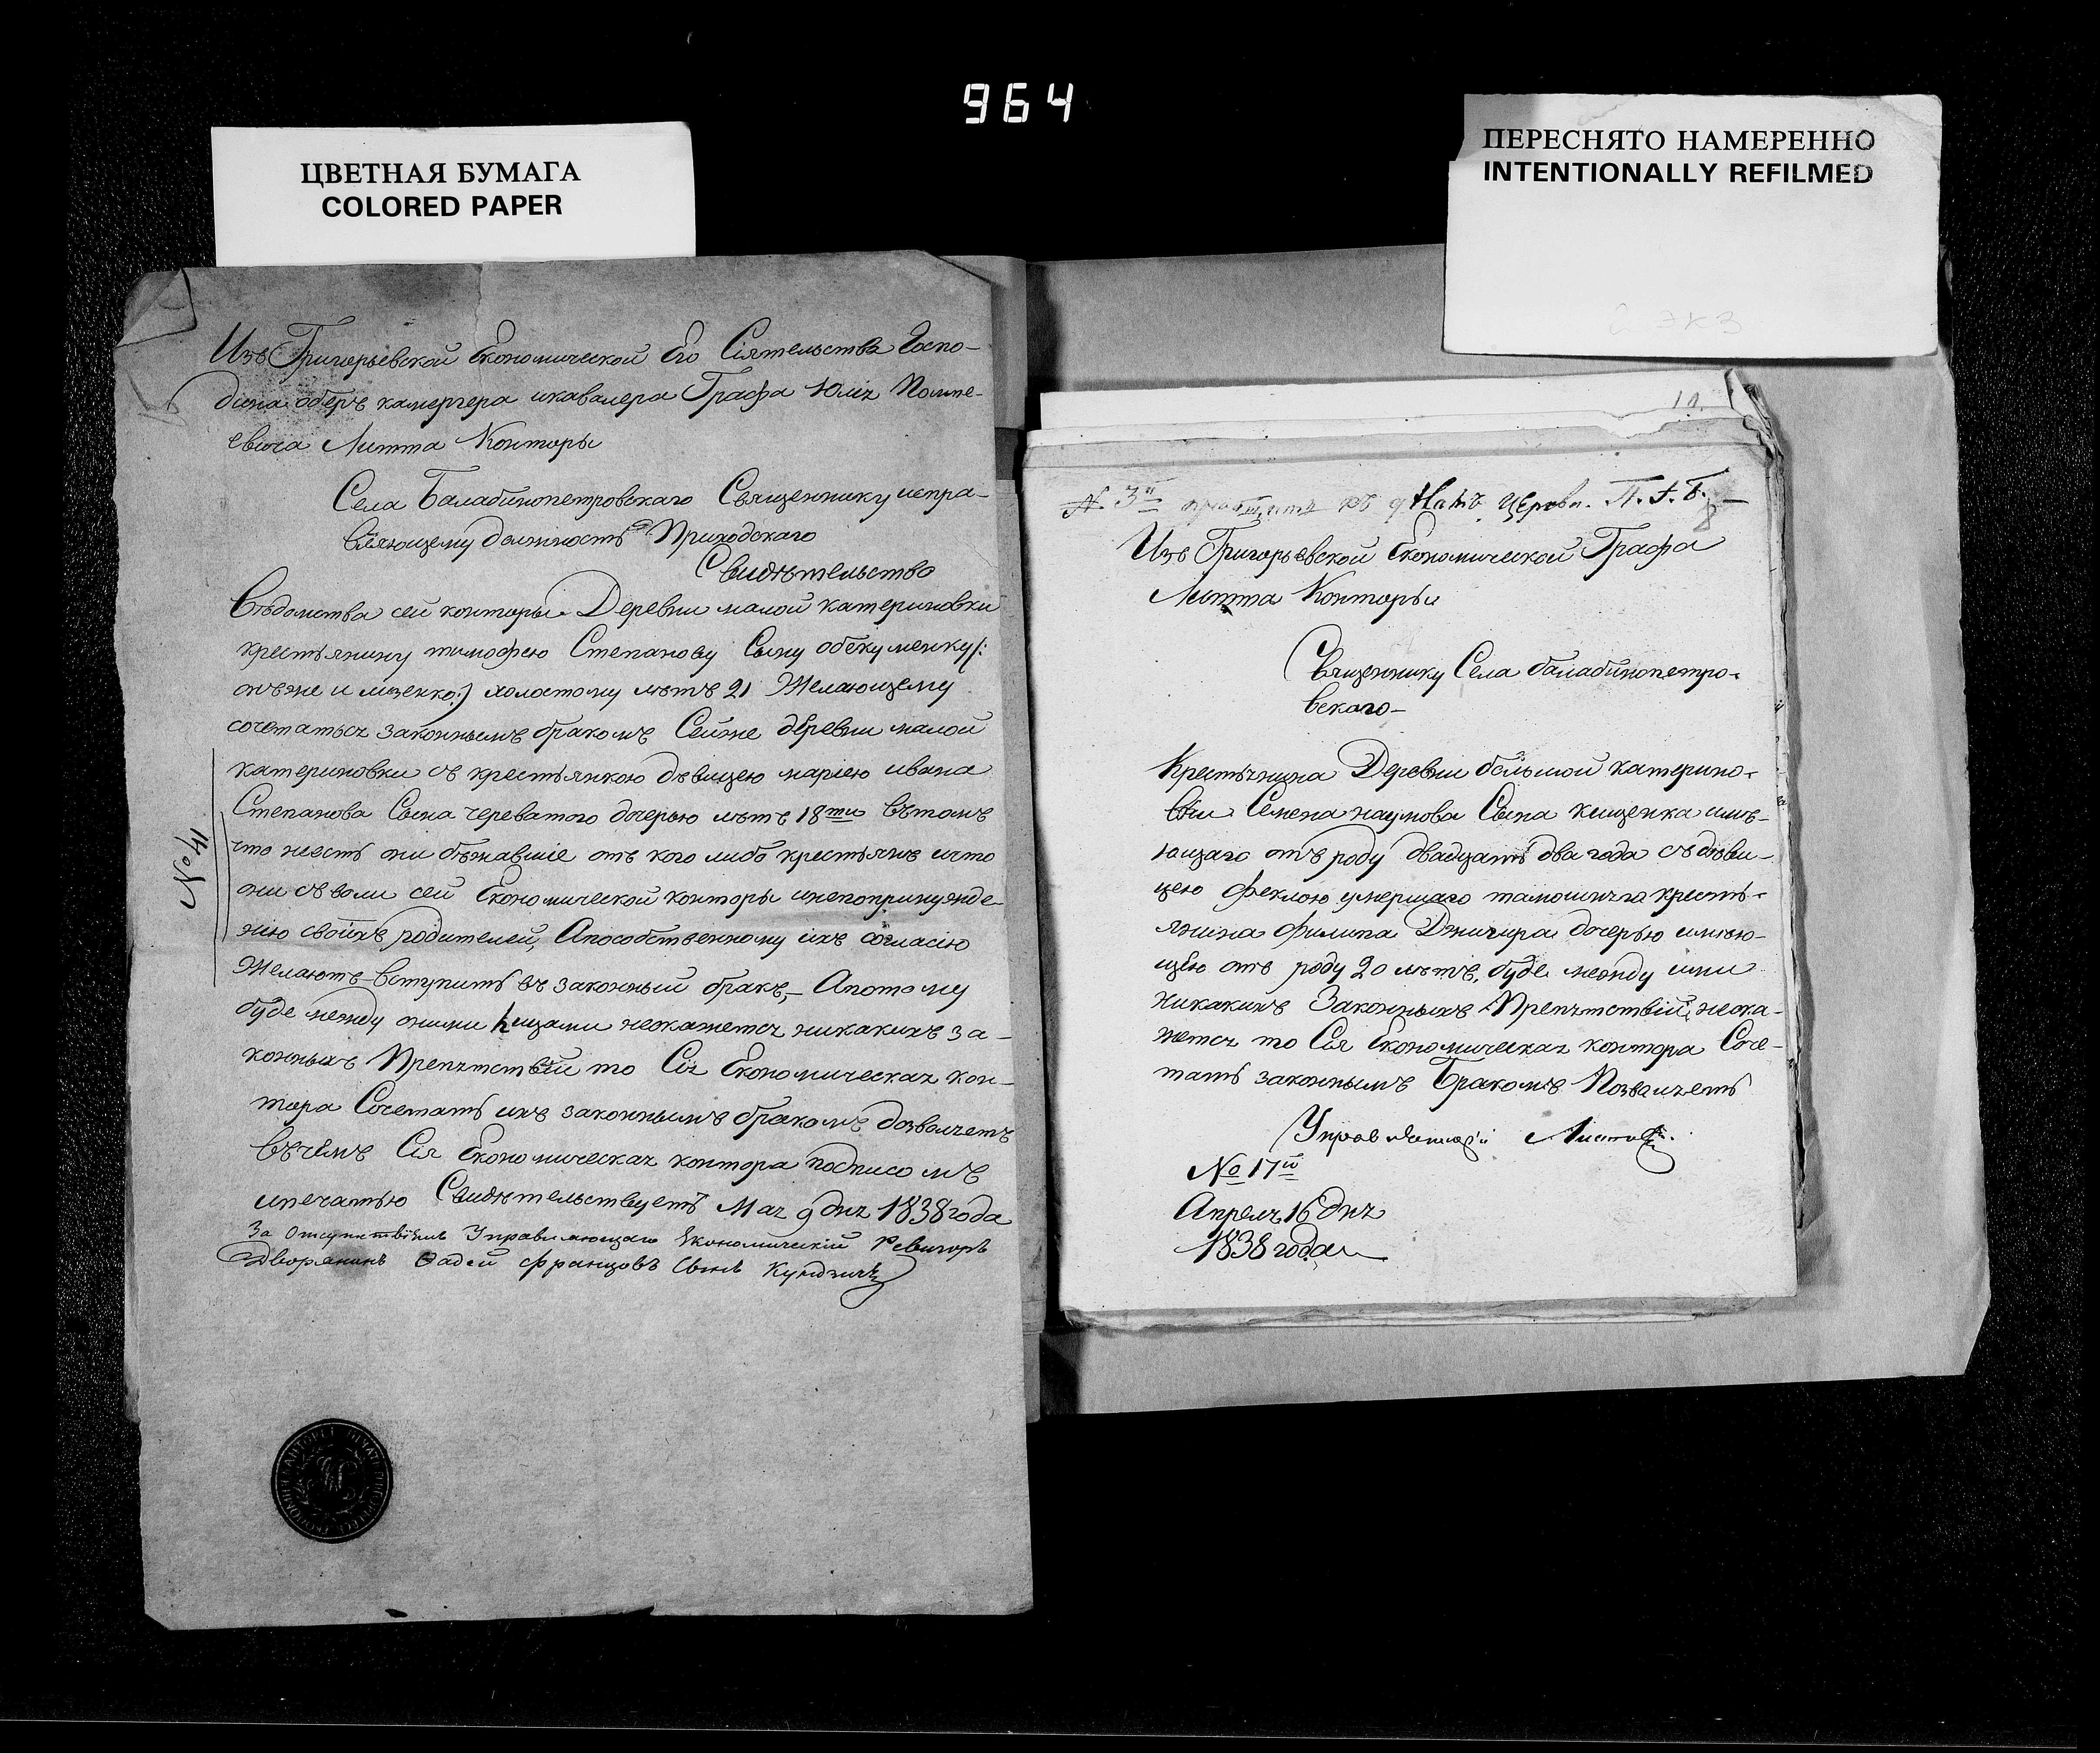 964
ЦВЕТНАЯ БУМАГА
COLORED PAPER
ПЕРЕСНЯТО НАМЕРЕННО
INTENTIONALLY REFILMED
Изъ Григорьевской Економической Его Сіятельства Госпо-
дина оберъ камергера икавалера Графа Юлія Помпе-
евича Литта Конторы
Села Балабинопетровскаго Священнику испра-
вляющему должность Приходскаго
Свидѣтельство
Вѣдомства сей конторы Деревни малой катериновки
крестьянину тимофею Степанову Сыну
онъже и мизенко:) холостому лѣтъ 21 Желающему
сочетаться законнымъ бракомъ Сейже деревни малой
катериновки съ крестьянкою дѣвицею маріею ивана
Степанова Сына череватого дочерью лѣтъ 18ти вътомъ
что неесть они бѣжавшіе отъ кого либо крестьянъ ичто
они съволи сей Економической конторы инепопринужде-
нію своихъ родителей, Апособственному ихъ согласію
Желаютъ вступить въ законный бракъ, Апотому
буде между оними лицами неокажется никакихъ за-
конныхъ Препятствій то Сія Економическая кон-
тора Сочетать ихъ законнымъ бракомъ дозваляетъ
въчемъ Сія Економическая контора подписомъ
ипечатью Свидѣтельствуетъ Мая 9 дня 1838 года
За Отсутствіемъ Управляющаго Економическій Ревизоръ
Дворянинъ Ѳадей Францовъ Сынъ Кундзичъ
№ 41
10.
№ 3й Церкви. П. Г. Б.
Изъ Григорьевской Економической Графа
Литта Конторы
Священнику Села балабинопетро-
вскаго
Крестьянина Деревни большой катерино-
вки Семена наумова Сына кищенка имѣ-
ющаго отъ роду двадцать два года съ дѣви-
цею Феклою умершаго тамошняго кресть-
янина филипа дочерью имѣю-
щею отъ роду 20 лѣтъ, буде между ими
никакихъ Законныхъ Препятствій, неока-
жется то Сія Економическая контора Соче-
тать законнымъ Бракомъ Позваляетъ
Управляющій
№ 17й
Апреля 16 дня
1838 года